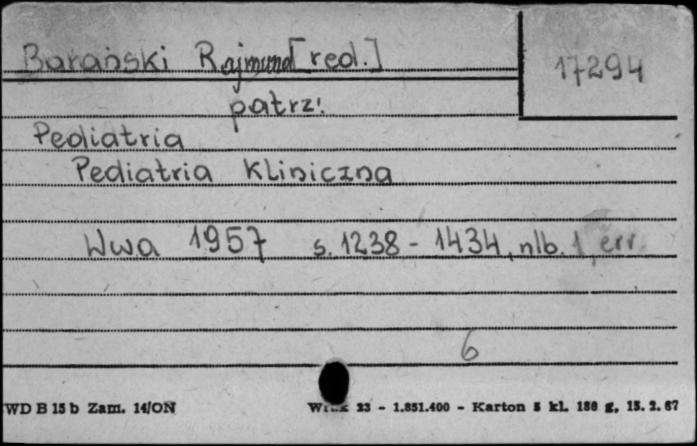 Barański Rajmund [red.]
17294
patrz:
Pediatria
Pediatria Kliniczna
Wwa 1957 s. 1238 - 1434, nlb. 1, err.
6
WD B 15 b Zam. 14/ON
23 - 1.851.400 - Karton 5 kl. 180 g, 15. 2. 67